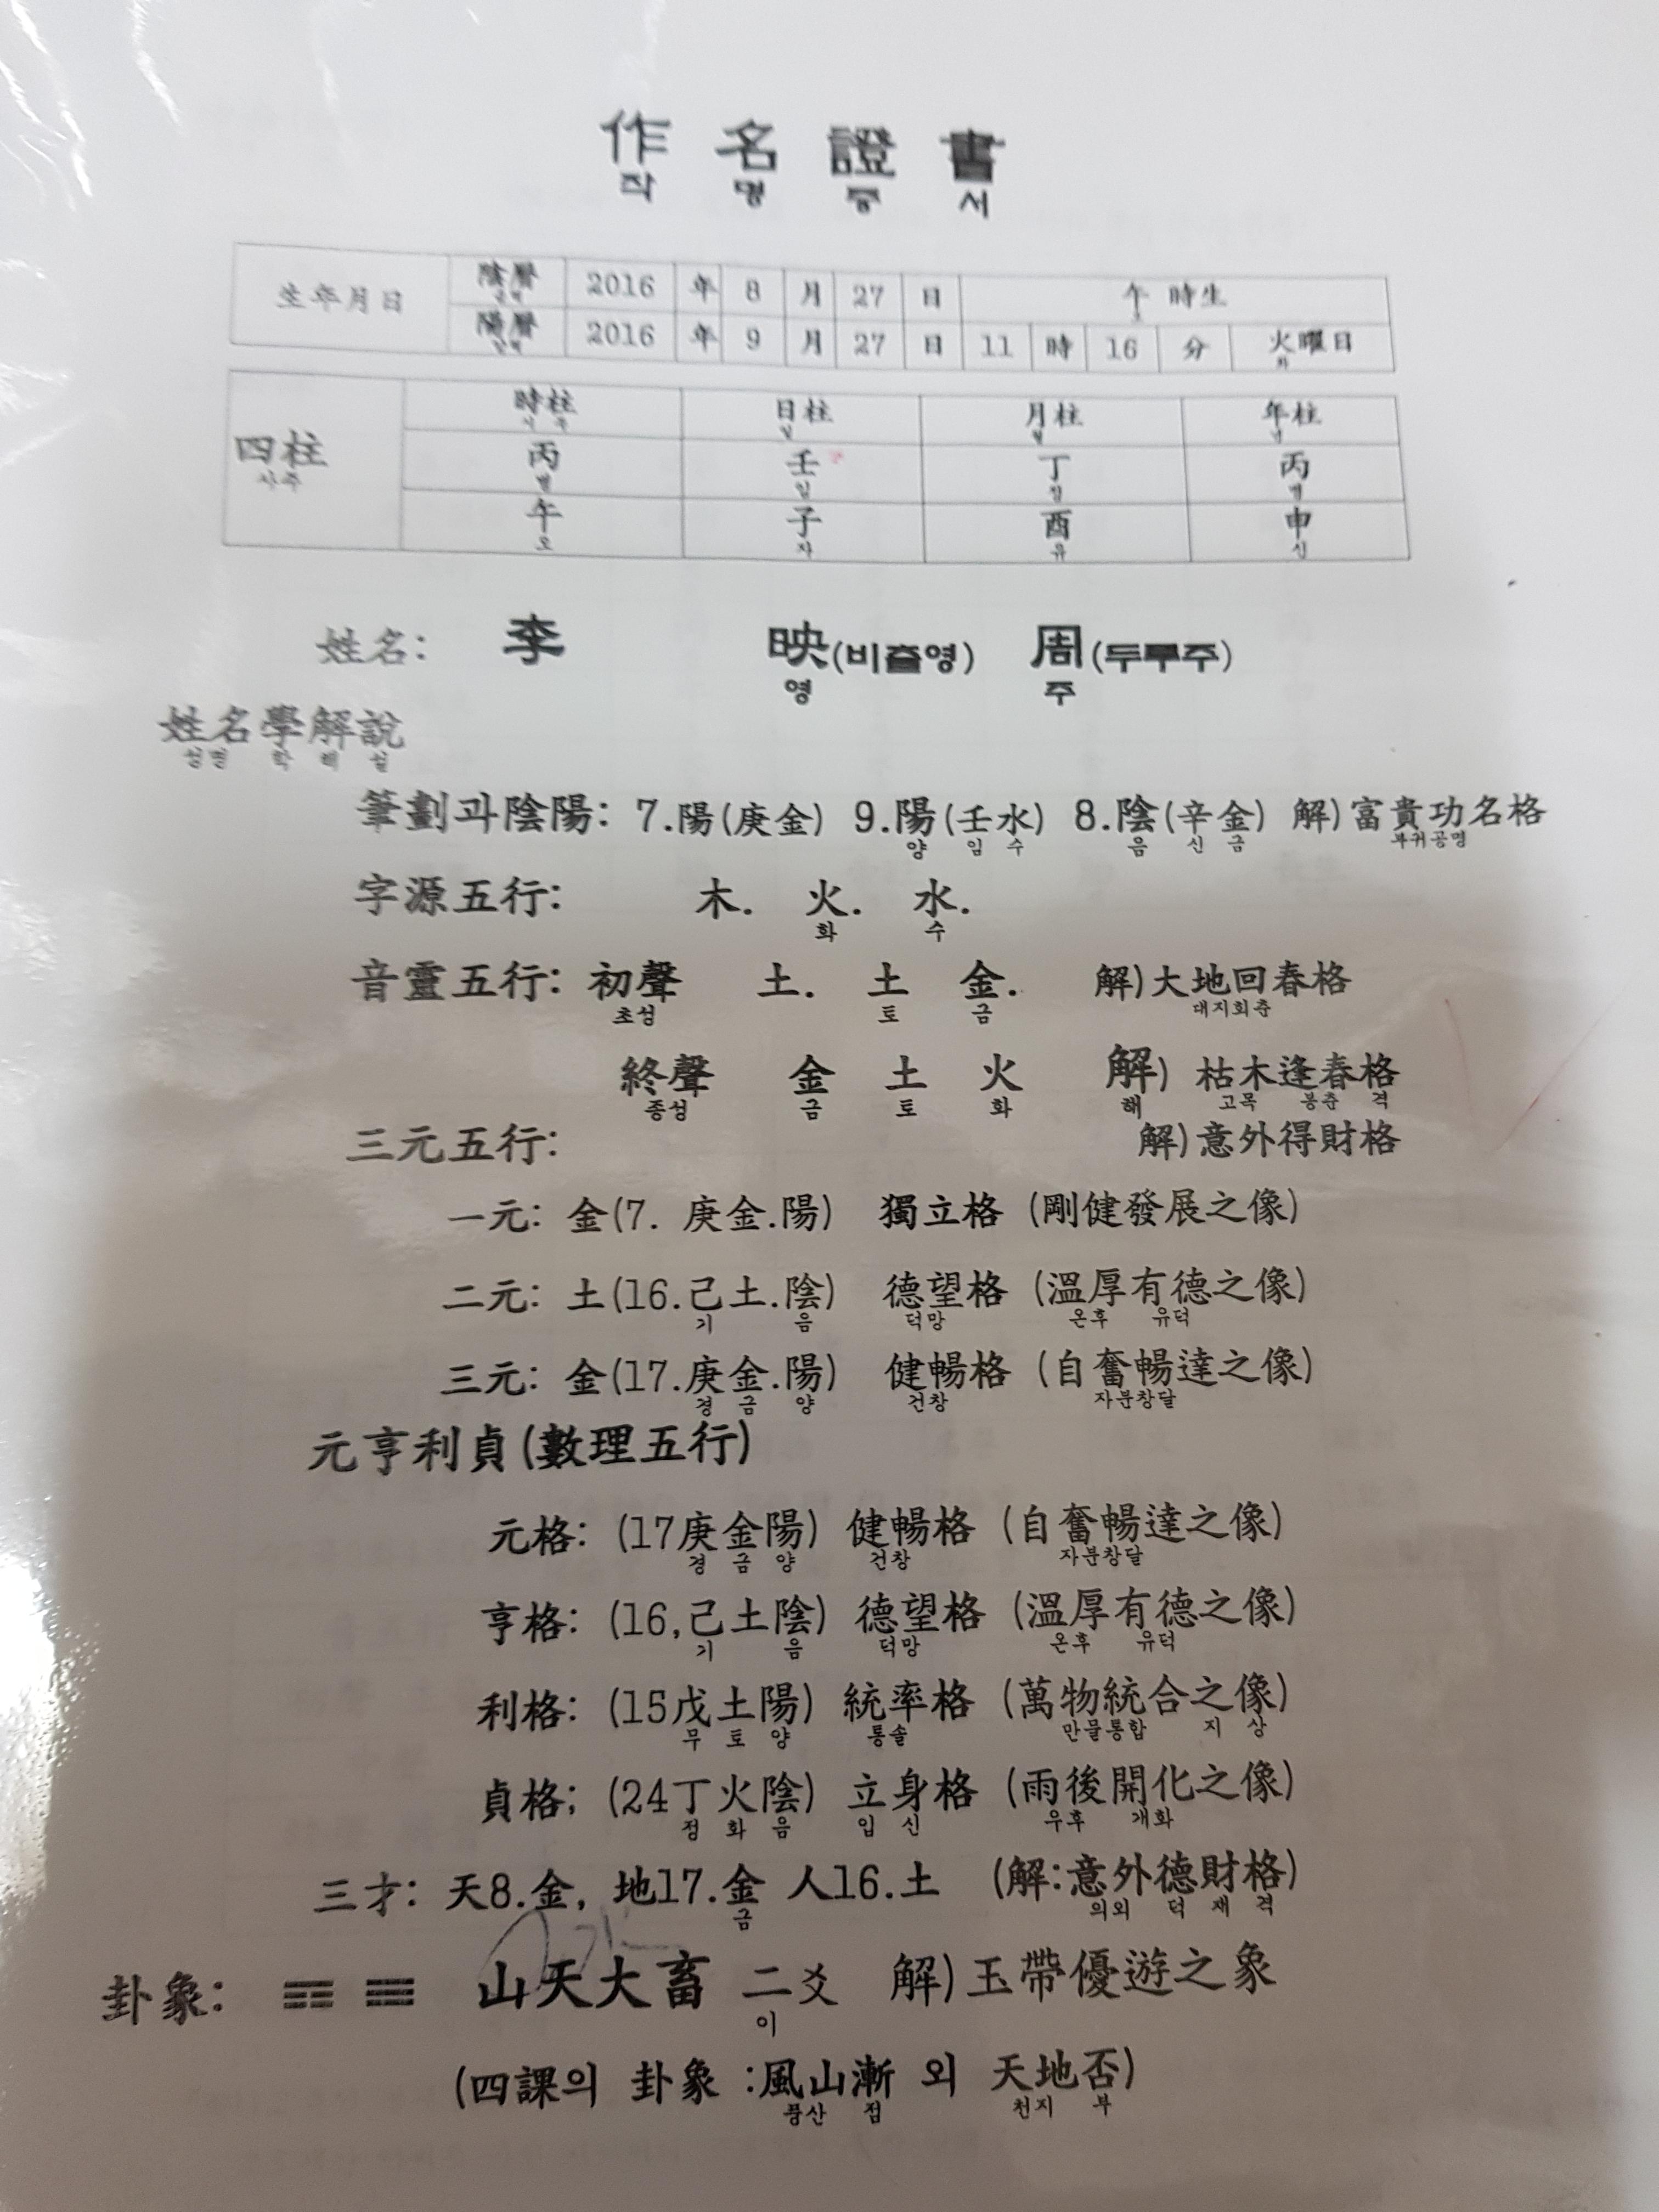 作名證書
작명증서
生年月日 陰曆 2016 年 8 月 27 日 午 時生
음력 오
陽曆 2016 年 9 月 27 日 11 時 16 分 火曜日
양력 화
四柱 時柱 日柱 月柱 年柱
사주 시주 일 월 년
丙 壬 丁 丙
병 임 정 병
午 子 酉 申
오 자 유 신
姓名: 李 映(비츨영) 周(두루주)
영 주
姓名學解說
성명 학 해 설
筆劃과陰陽: 7.陽(庚金) 9.陽(壬水) 8.陰(辛金) 解)富貴功名格
양 임 수 음 신 금 부귀공명
字源五行: 木. 火. 水.
화 수
音靈五行: 初聲 土. 土 金. 解)大地回春格
초성 토 금 대지회춘
終聲 金 土 火 解) 枯木逢春格
종성 금 토 화 해 고목 봉춘 격
三元五行: 解)意外得財格
一元: 金(7. 庚金.陽) 獨立格 (剛健發展之像)
二元: 土(16.己土.陰) 德望格 (溫厚有德之像)
기 음 덕망 온후 유덕
三元: 金(17.庚金.陽) 健暢格 (自奮暢達之像)
경 금 양 건창 자분창달
元亨利貞(數理五行)
元格: (17庚金陽) 健暢格 (自奮暢達之像)
경 금 양 건창 자분창달
亨格: (16,己土陰) 德望格 (溫厚有德之像)
기 음 덕망 온후 유덕
利格: (15戊土陽) 統率格 (萬物統合之像)
무 토 양 통솔 만물통합 지 상
貞格; (24丁火陰) 立身格 (雨後開化之像)
정 화 음 입 신 우후 개화
三才: 天8.金, 地17.金 人16.土 (解:意外德財格)
금 의외 덕 재 격
卦象: ☶ ☰ 山天大畜 二爻 解)玉帶優遊之象
이
(四課의 卦象 :風山漸 외 天地否)
풍산 점 천지 부